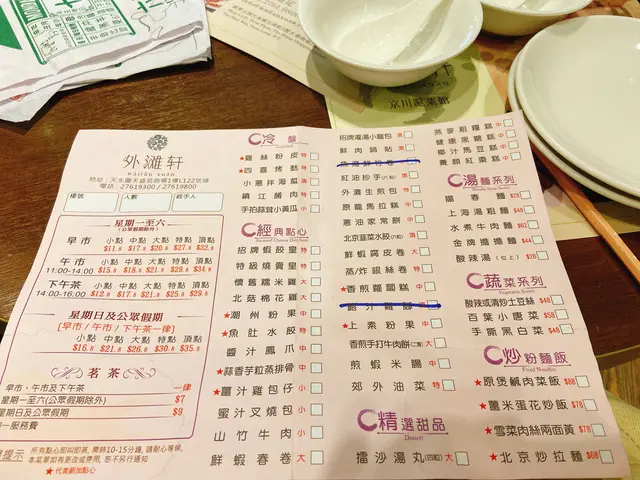 外灘軒
地址：天水圍天盛苑商場1樓L122號鋪
電話：27619300 / 27619800
檯號
人數
經手人
星期一至六
(公眾假期除外)
小點 中點 大點 特點 頂點
早市 $11.8 $17.8 $20.8 $27.8 $32.8
午市 小點 中點 大點 特點 頂點
11:00-14:00 $15.8 $18.8 $21.8 $29.8 $34.8
下午茶 小點 中點 大點 特點 頂點
14:00-16:00 $12.8 $17.8 $21.8 $25.8 $29.8
星期日及公眾假期
[早市 / 午市 / 下午茶一律]
小點 中點 大點 特點 頂點
$16.8 $21.8 $26.8 $30.8 $35.8
茗茶
早市、午市及下午茶 一律
星期一至六(公眾假期除外) $7
星期日及公眾假期 $9
一服務費
提示
所有點心即叫即蒸, 需時10-15分鐘, 請耐心等候。
本菜單如有更改或售罄, 恕不另行通知
★代表新加點心
冷盤
★雞絲粉皮 特
★四喜烤麩 特
小蔥拌海蜇 頂
鎮江餚肉 特
手拍蒜茸小黃瓜 中
經典點心
招牌蝦餃皇 特
特級燒賣皇 特
懷舊糯米雞 大
北菇棉花雞 大
★潮州粉果 中
★魚肚水餃 特
醬汁鳳爪 中
★蒜香芋粒蒸排骨 中
★薑汁雞包仔 小
蜜汁叉燒包 小
山竹牛肉 小
鮮蝦春卷 大
招牌灌湯小籠包 頂
鮮肉鍋貼
紅油抄手
外灘生煎包 特
原籠馬拉糕 中
蔥油家常餅 中
北京韮菜水餃
鮮蝦腐皮卷 大
蒸/炸銀絲卷 特
★香煎蘿蔔糕 中
★上素粉果 中
香煎手打牛肉餅
煎蝦米腸 中
郊外油菜 特
精選甜品
Dessert
擂沙湯丸 大
燕麥粗糧糕 中
健康紅糖糕 中
椰汁馬豆糕 中
養顏紅棗糕 中
湯麵系列
陽春麵 $28
上海湯粗麵 $48
水煮牛肉麵 $62
金牌擔擔麵 $44
酸辣湯 $28
蔬菜系列
酸辣或清炒土豆絲 $48
百葉小唐菜 $58
手撕黑白菜 $48
炒粉麵飯
Fried Noodles
★原煲鹹肉菜飯 $88
★薑米蛋花炒飯 $78
★雪菜肉絲兩面黃 $78
★北京炒拉麵 $68
京川滬菜館